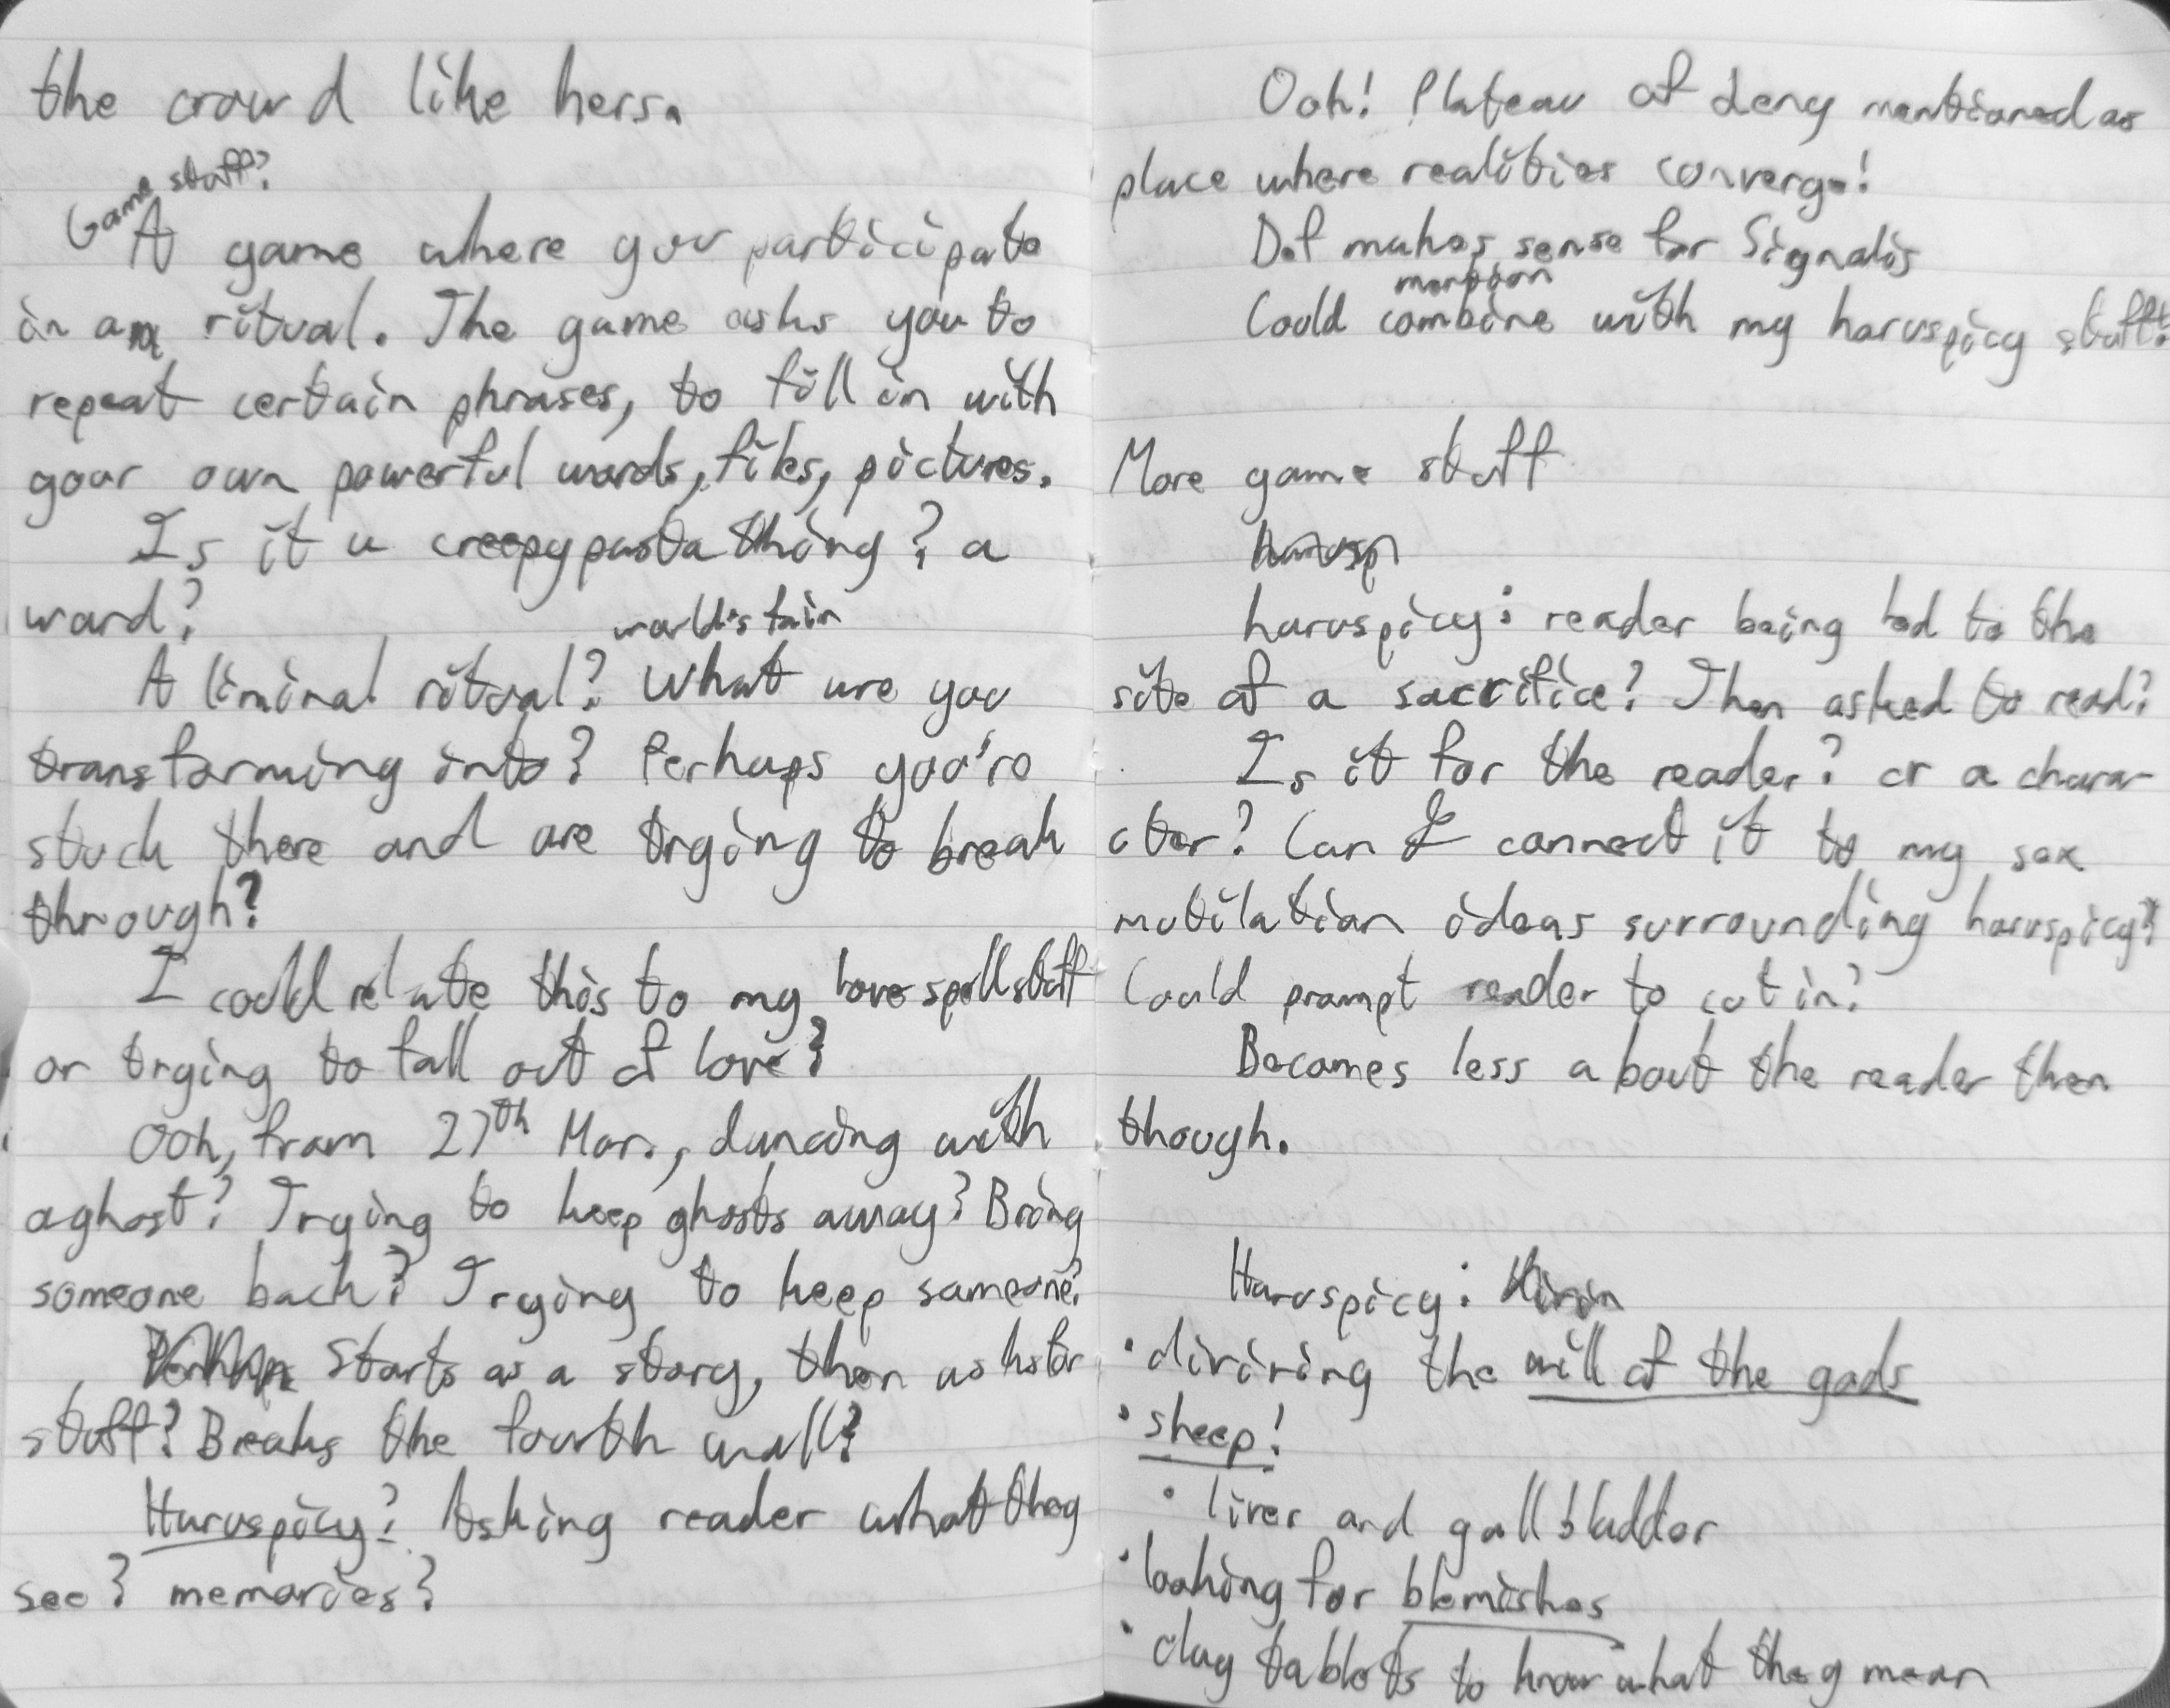 the crowd like hers.
Game stuff?
A game where you participate
in a ritual. The game asks you to
repeat certain phrases, to fill in with
your own powerful words, files, pictures.
Is it a creepypasta thing? a
ward?
worldstain
A liminal ritual? What are you
transforming into? Perhaps you're
stuck there and are trying to break
through?
I could relate this to my love spell stuff
or trying to fall out of love?
Ooh, from 27th Mar., dancing with
a ghost? Trying to keep ghosts away? Bring
someone back? Trying to keep someone?
Starts as a story, then asks for
stuff? Breaks the fourth wall?
Haruspicy? Asking reader what they
see? memories?
Ooh! Plateau of Leng mentioned as
place where realities converge!
Def makes sense for Signalis
mention
Could combine with my haruspicy stuff?
More game stuff
harusp
haruspicy: reader being led to the
site of a sacrifice? Then asked to read?
Is it for the reader? or a chara-
cter? Can I connect it to my sex
mutilation ideas surrounding haruspicy?
Could prompt reader to cut in?
Becomes less about the reader then
though.
Haruspicy:
• divining the will of the gods
• sheep!
• liver and gall bladder
• looking for blemishes
• clay tablets to know what they mean